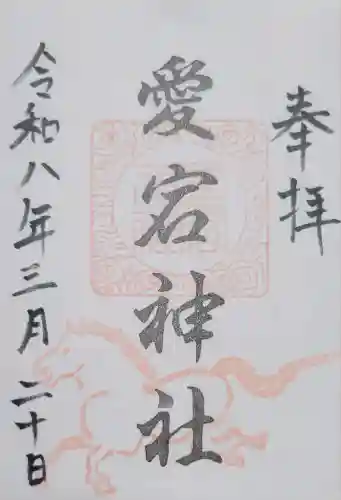 奉拝
愛宕神社
令和八年三月二十日